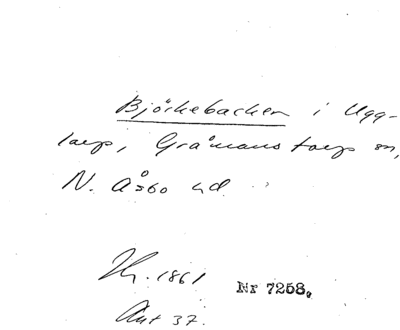 Björkebacken i Ugg-
larp, Gråmanstorps sn,
N. Åsbo hd.
Hr. 1861 Nr 7258.
Ant 37.